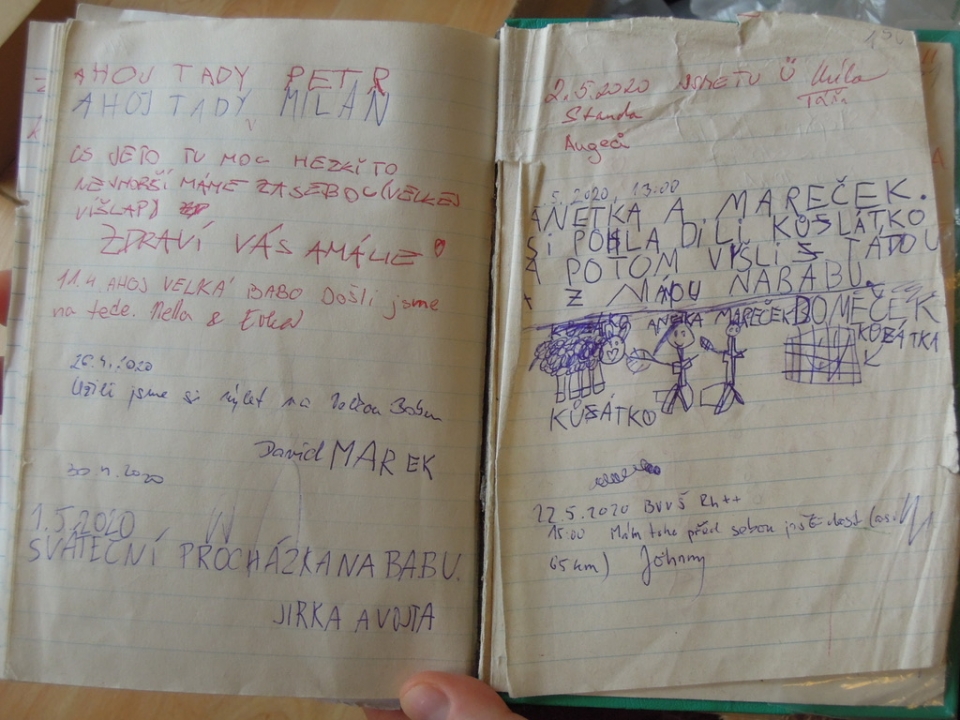 AHOJ TADY PETR
AHOJ TADY MILAN
JE TO TU MOC HEZKÍ TO
NEJHORŠÍ MÁME ZA SEBOU (VELKEJ
VÍŠLAP)
ZDRAVÍ VÁS AMÁLIE
11.4. AHOJ VELKÁ BABO Došli jsme
na tebe. Nella & Erika
26.4.2020
Užili jsme si výlet na Velkou Babu
David MAREK
30.4.2020
1.5.2020
SVÁTEČNÍ PROCHÁZKA NA BABU.
JIRKA A VOJTA
2.5.2020 JSME TU Ü Míla
Standa
.5.2020, 13:00
ANETKA A MAREČEK.
SI POHLADILI KŮSLÁTKO
A POTOM VYŠLI S TÁTOU
A Z MÁMOU NABABU.
ANETKA MAREČEK DOMEČEK
KŮZÁTKA
KŮSÁTKO
22.5.2020 BVVŠ Rh++
15:00 Mám toho před sebou ještě dost (asi
65 km) Johnny